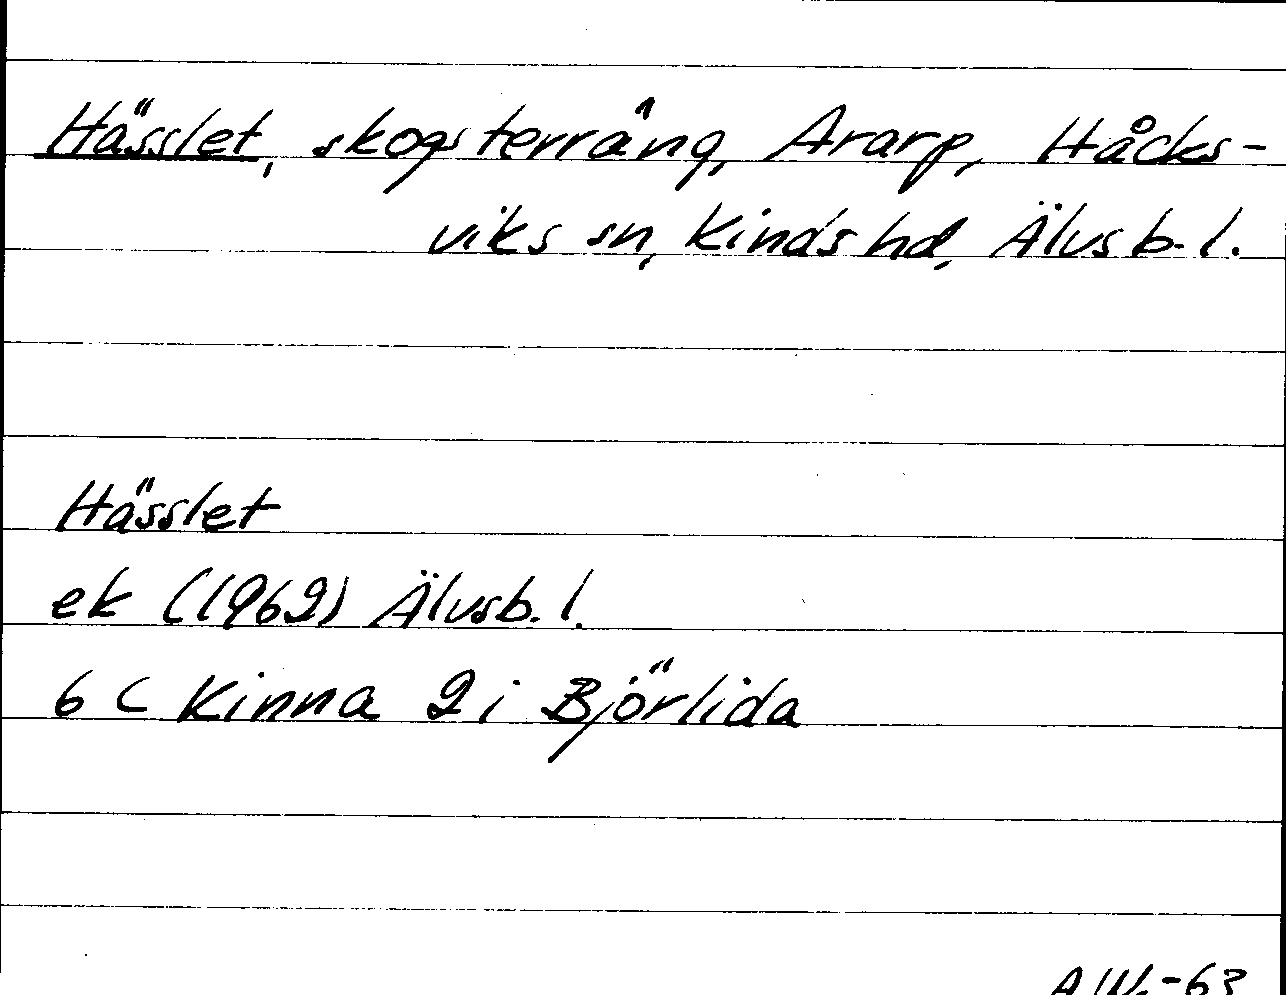 Hässlet, skogsterräng, Ararp, Håcks-
viks sn, Kinds hd, Älvsb. l.
Hässlet
ek (1962) Älvsb. l.
6 C Kinna 2 i Björlida
A W.-63